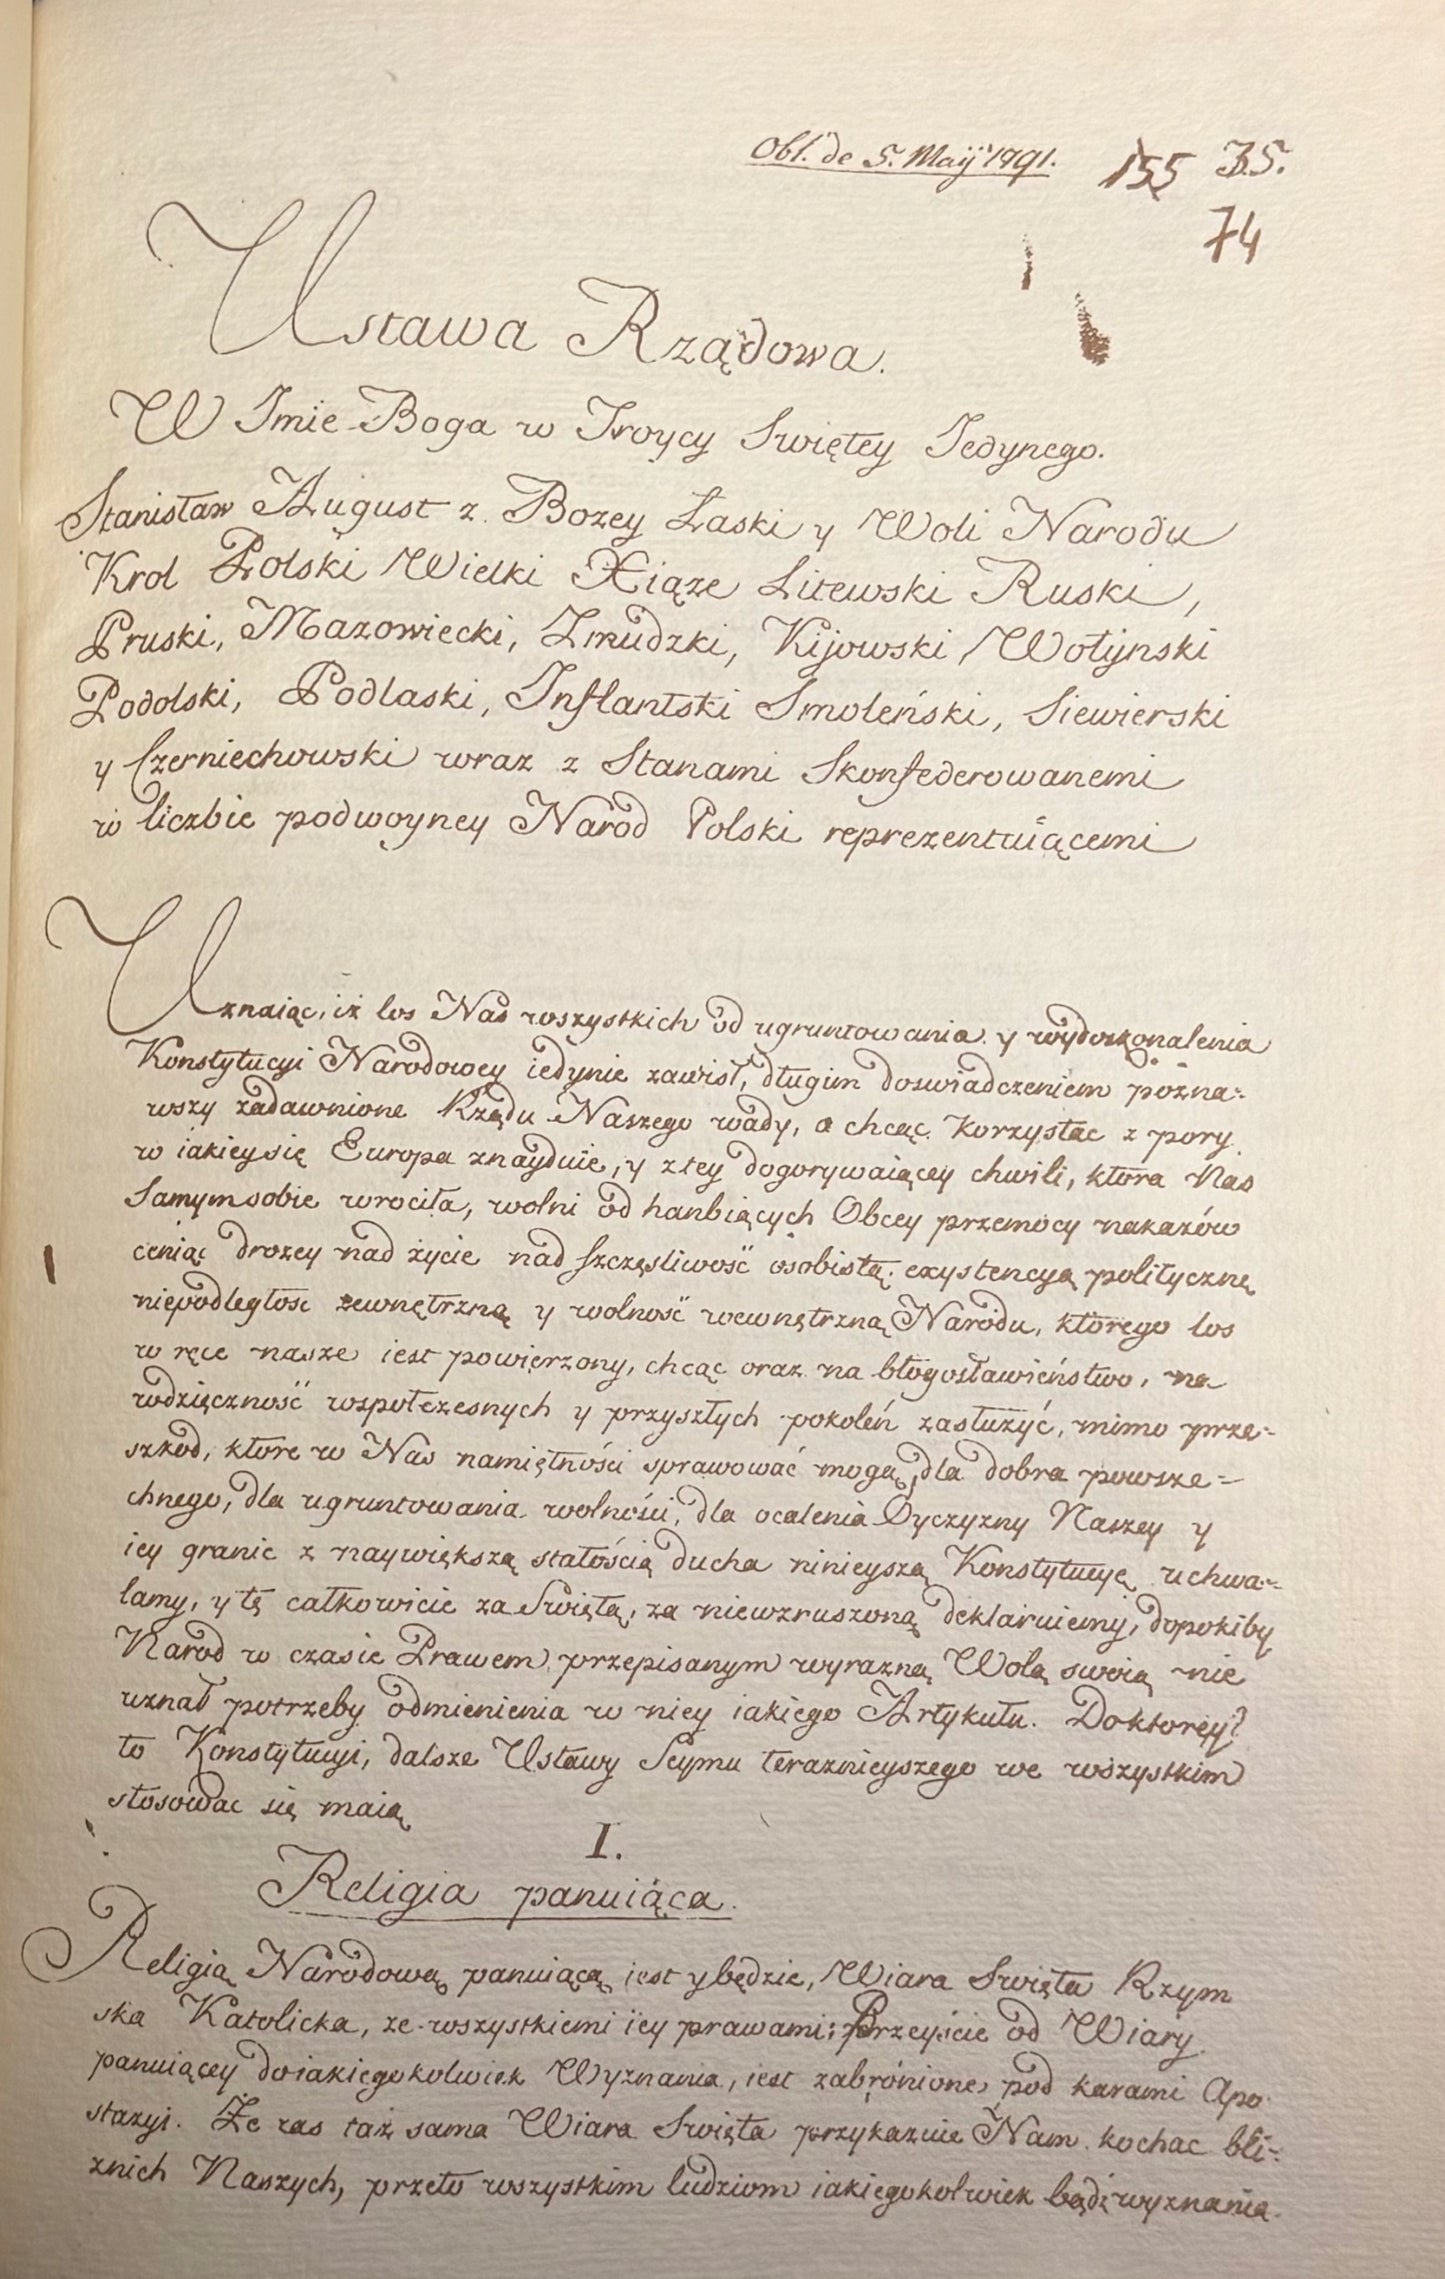 Obl. de 5. Maij 1791. 155 35.
74
Ustawa Rządowa.
W Imie Boga w Troycy Swiętey Jedynego.
Stanisław August z Bozey Łaski y Woli Narodu
Krol Polski Wielki Xiąze Litewski Ruski,
Pruski, Mazowiecki, Zmudzki, Kijowski, Wołynski
Podolski, Podlaski, Inflantski Smoleński, Siewierski
y Czerniechowski wraz z Stanami Skonfederowanemi
w liczbie podwoyney Naród Polski reprezentuiącemi
Uznaiąc, iż los Nas wszystkich od ugruntowania y wydoskonalenia
Konstytucyi Narodowey iedynie zawisł, długim doswiadczeniem pozna=
wszy zadawnione Rządu Naszego wady, a chcąc korzystac z pory
w iakiey się Europa znayduie, y z tey dogorywaiącey chwili, ktora Nas
Samym sobie wrociła, wolni od hanbiących Obcey przemocy nakazów
ceniąc drozey nad życie nad szczęsliwość osobistą: exystencyą polityczną
niepodległosc zewnętrzną y wolność wewnętrzną Narodu, którego los
w ręce nasze iest powierzony, chcąc oraz na błogosławieństwo, na
wdzięczność wspołczesnych y przyszłych pokoleń zasłużyć, mimo prze=
szkod, ktore w Nas namiętności sprawować mogą, dla dobra powsze=
chnego, dla ugruntowania wolności, dla ocalenia Oyczyzny Naszey y
iey granic z naywiększą stałością ducha ninieyszą Konstytucyę uchwa=
lamy, y tę całkowicie za Swiętą, za niewzruszoną deklaruiemy, dopokiby
Narod w czasie Prawem przepisanym wyrazną Wolą swoią nie
uznał potrzeby odmienienia w niey iakiego Artykułu. Do ktorey
to Konstytucyi, dalsze Ustawy Seymu teraznieyszego we wszystkim
stosowac się maią
I.
Religia panuiąca.
Religią Narodową panuiącą iest y będzie, Wiara Swięta Rzym
ska Katolicka, ze wszystkiemi iey prawami; Przeyście od Wiary
panuiącey do iakiegokolwiek Wyznania, iest zabronione pod karami Apo
stazyi. Że zas taż sama Wiara Swięta przykazuie Nam kochac bli=
znich Naszych, przeto wszystkim ludziom iakiegokolwiek bądź wyznania